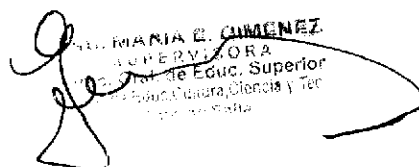 MARIA E. GIMENEZ
SUPERVISORA
Gral. de Educ. Superior
Educ. Cultura, Ciencia y Tec
Salta